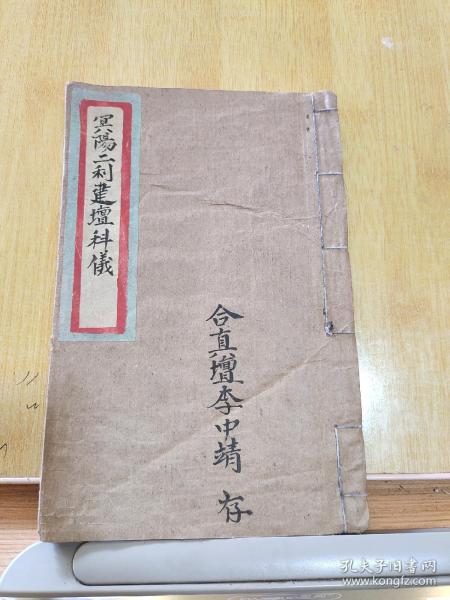 冥陽二利建壇科儀
合真壇李中靖 存
孔夫子旧书网
www.kongfz.com